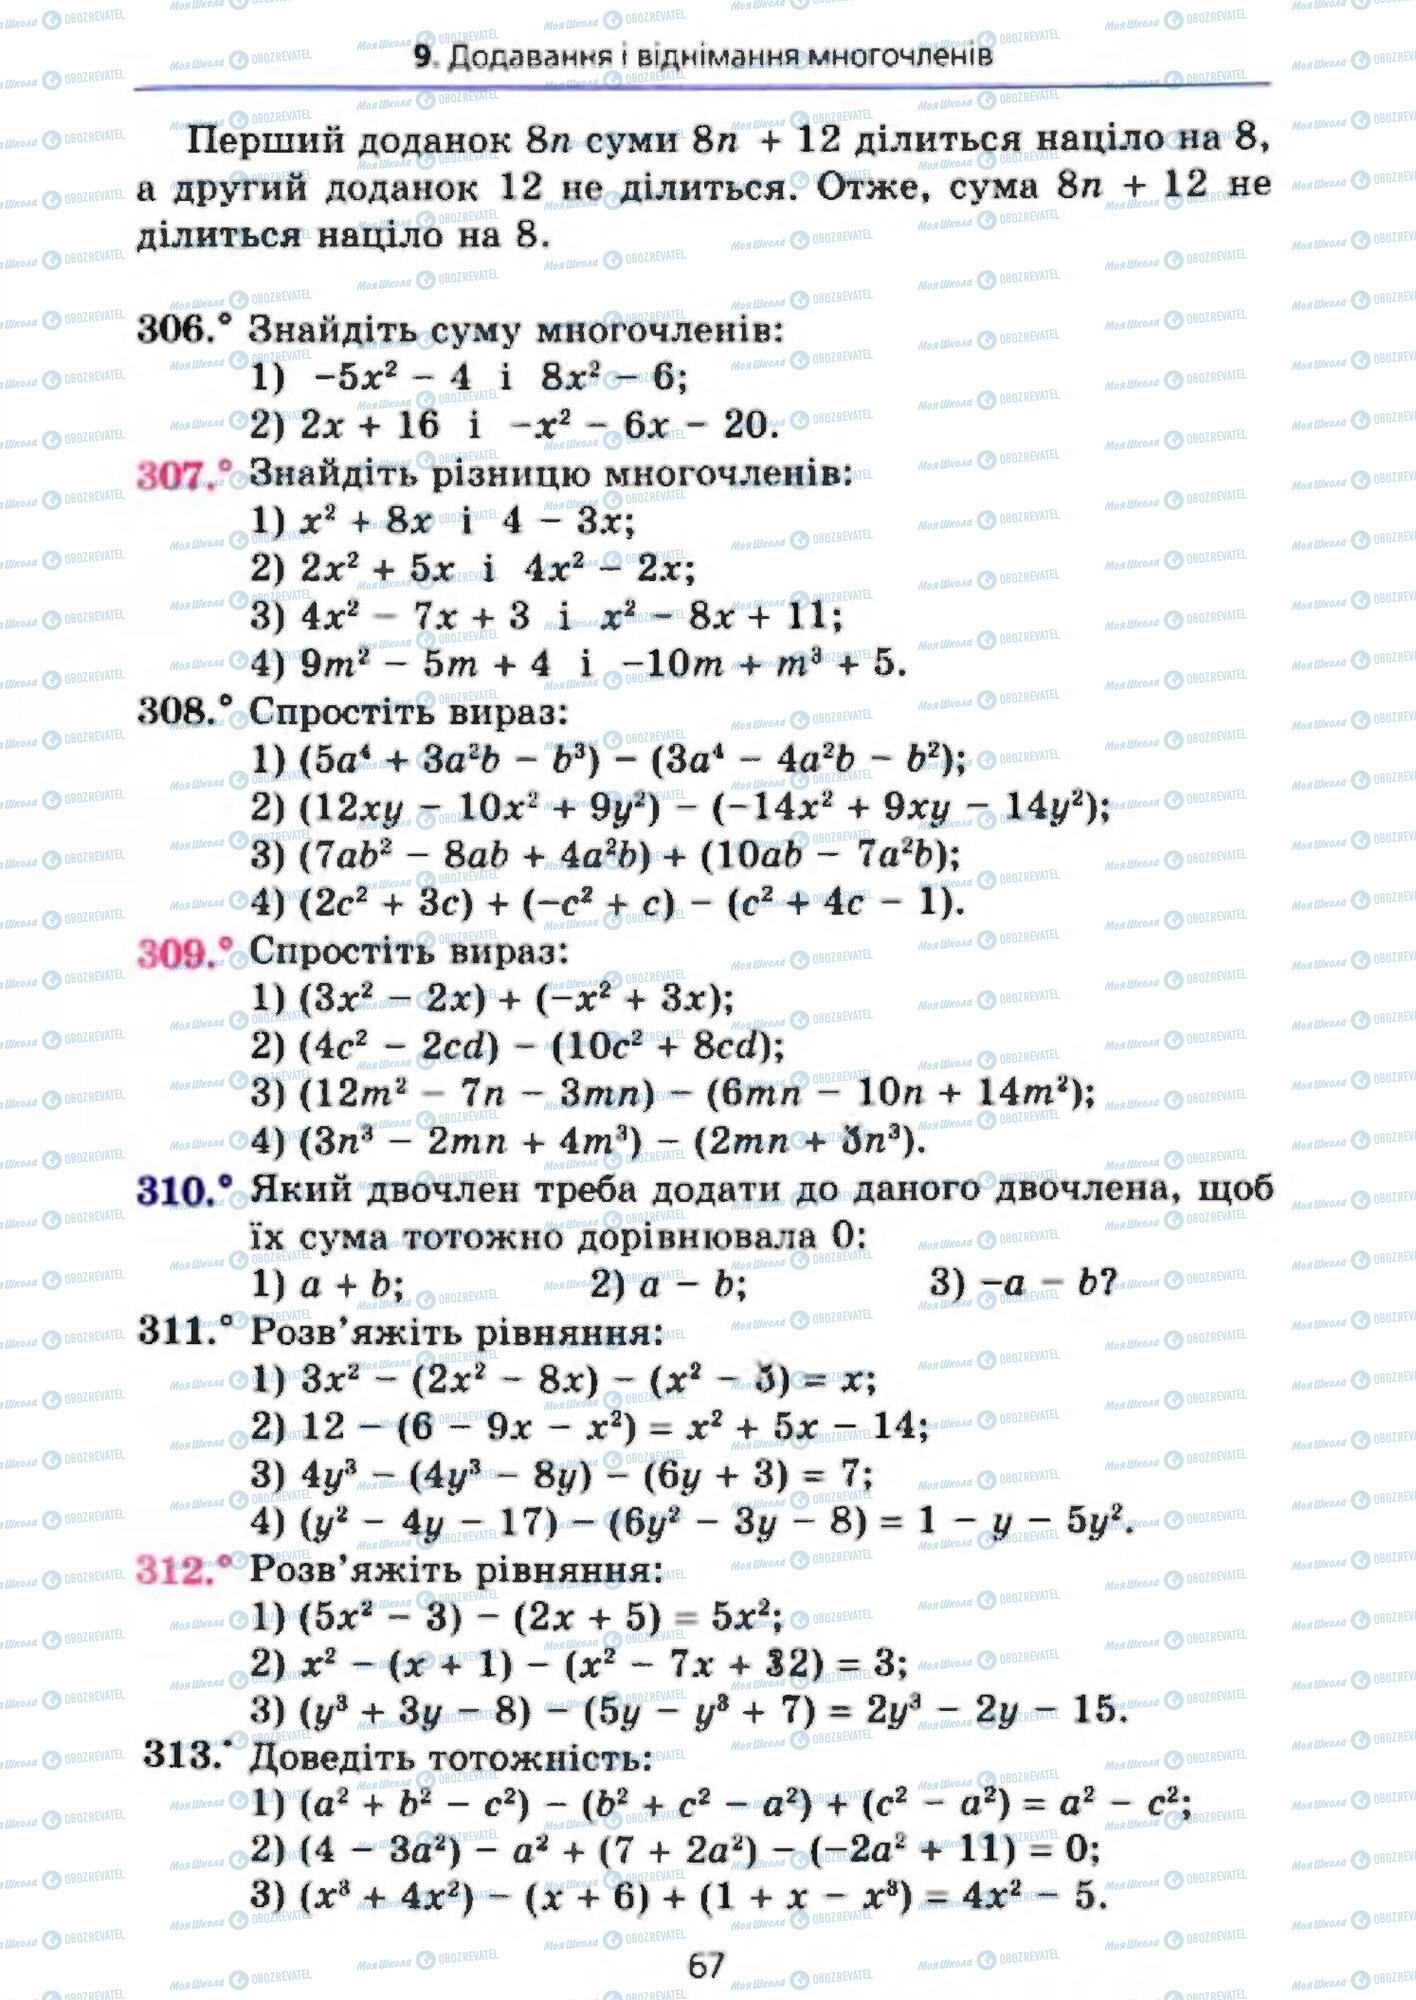 9. Додавання і віднімання многочленів
Перший доданок 8n суми 8n + 12 ділиться націло на 8,
а другий доданок 12 не ділиться. Отже, сума 8n + 12 не
ділиться націло на 8.
306.° Знайдіть суму многочленів:
1) −5x² − 4 і 8x² − 6;
2) 2x + 16 і −x² − 6x − 20.
307.° Знайдіть різницю многочленів:
1) x² + 8x і 4 − 3x;
2) 2x² + 5x і 4x² − 2x;
3) 4x² − 7x + 3 і x² − 8x + 11;
4) 9m² − 5m + 4 і −10m + m³ + 5.
308.° Спростіть вираз:
1) (5a⁴ + 3a²b − b³) − (3a⁴ − 4a²b − b²);
2) (12xy − 10x² + 9y²) − (−14x² + 9xy − 14y²);
3) (7ab² − 8ab + 4a²b) + (10ab − 7a²b);
4) (2c² + 3c) + (−c² + c) − (c² + 4c − 1).
309.° Спростіть вираз:
1) (3x² − 2x) + (−x² + 3x);
2) (4c² − 2cd) − (10c² + 8cd);
3) (12m² − 7n − 3mn) − (6mn − 10n + 14m²);
4) (3n³ − 2mn + 4m³) − (2mn + 3n³).
310.° Який двочлен треба додати до даного двочлена, щоб
їх сума тотожно дорівнювала 0:
1) a + b; 2) a − b; 3) −a − b?
311.° Розв’яжіть рівняння:
1) 3x² − (2x² − 8x) − (x² − 3) = x;
2) 12 − (6 − 9x − x²) = x² + 5x − 14;
3) 4y³ − (4y³ − 8y) − (6y + 3) = 7;
4) (y² − 4y − 17) − (6y² − 3y − 8) = 1 − y − 5y².
312.° Розв’яжіть рівняння:
1) (5x² − 3) − (2x + 5) = 5x²;
2) x² − (x + 1) − (x² − 7x + 32) = 3;
3) (y³ + 3y − 8) − (5y − y³ + 7) = 2y³ − 2y − 15.
313.˙ Доведіть тотожність:
1) (a² + b² − c²) − (b² + c² − a²) + (c² − a²) = a² − c²;
2) (4 − 3a²) − a² + (7 + 2a²) − (−2a² + 11) = 0;
3) (x³ + 4x²) − (x + 6) + (1 + x − x³) = 4x² − 5.
67